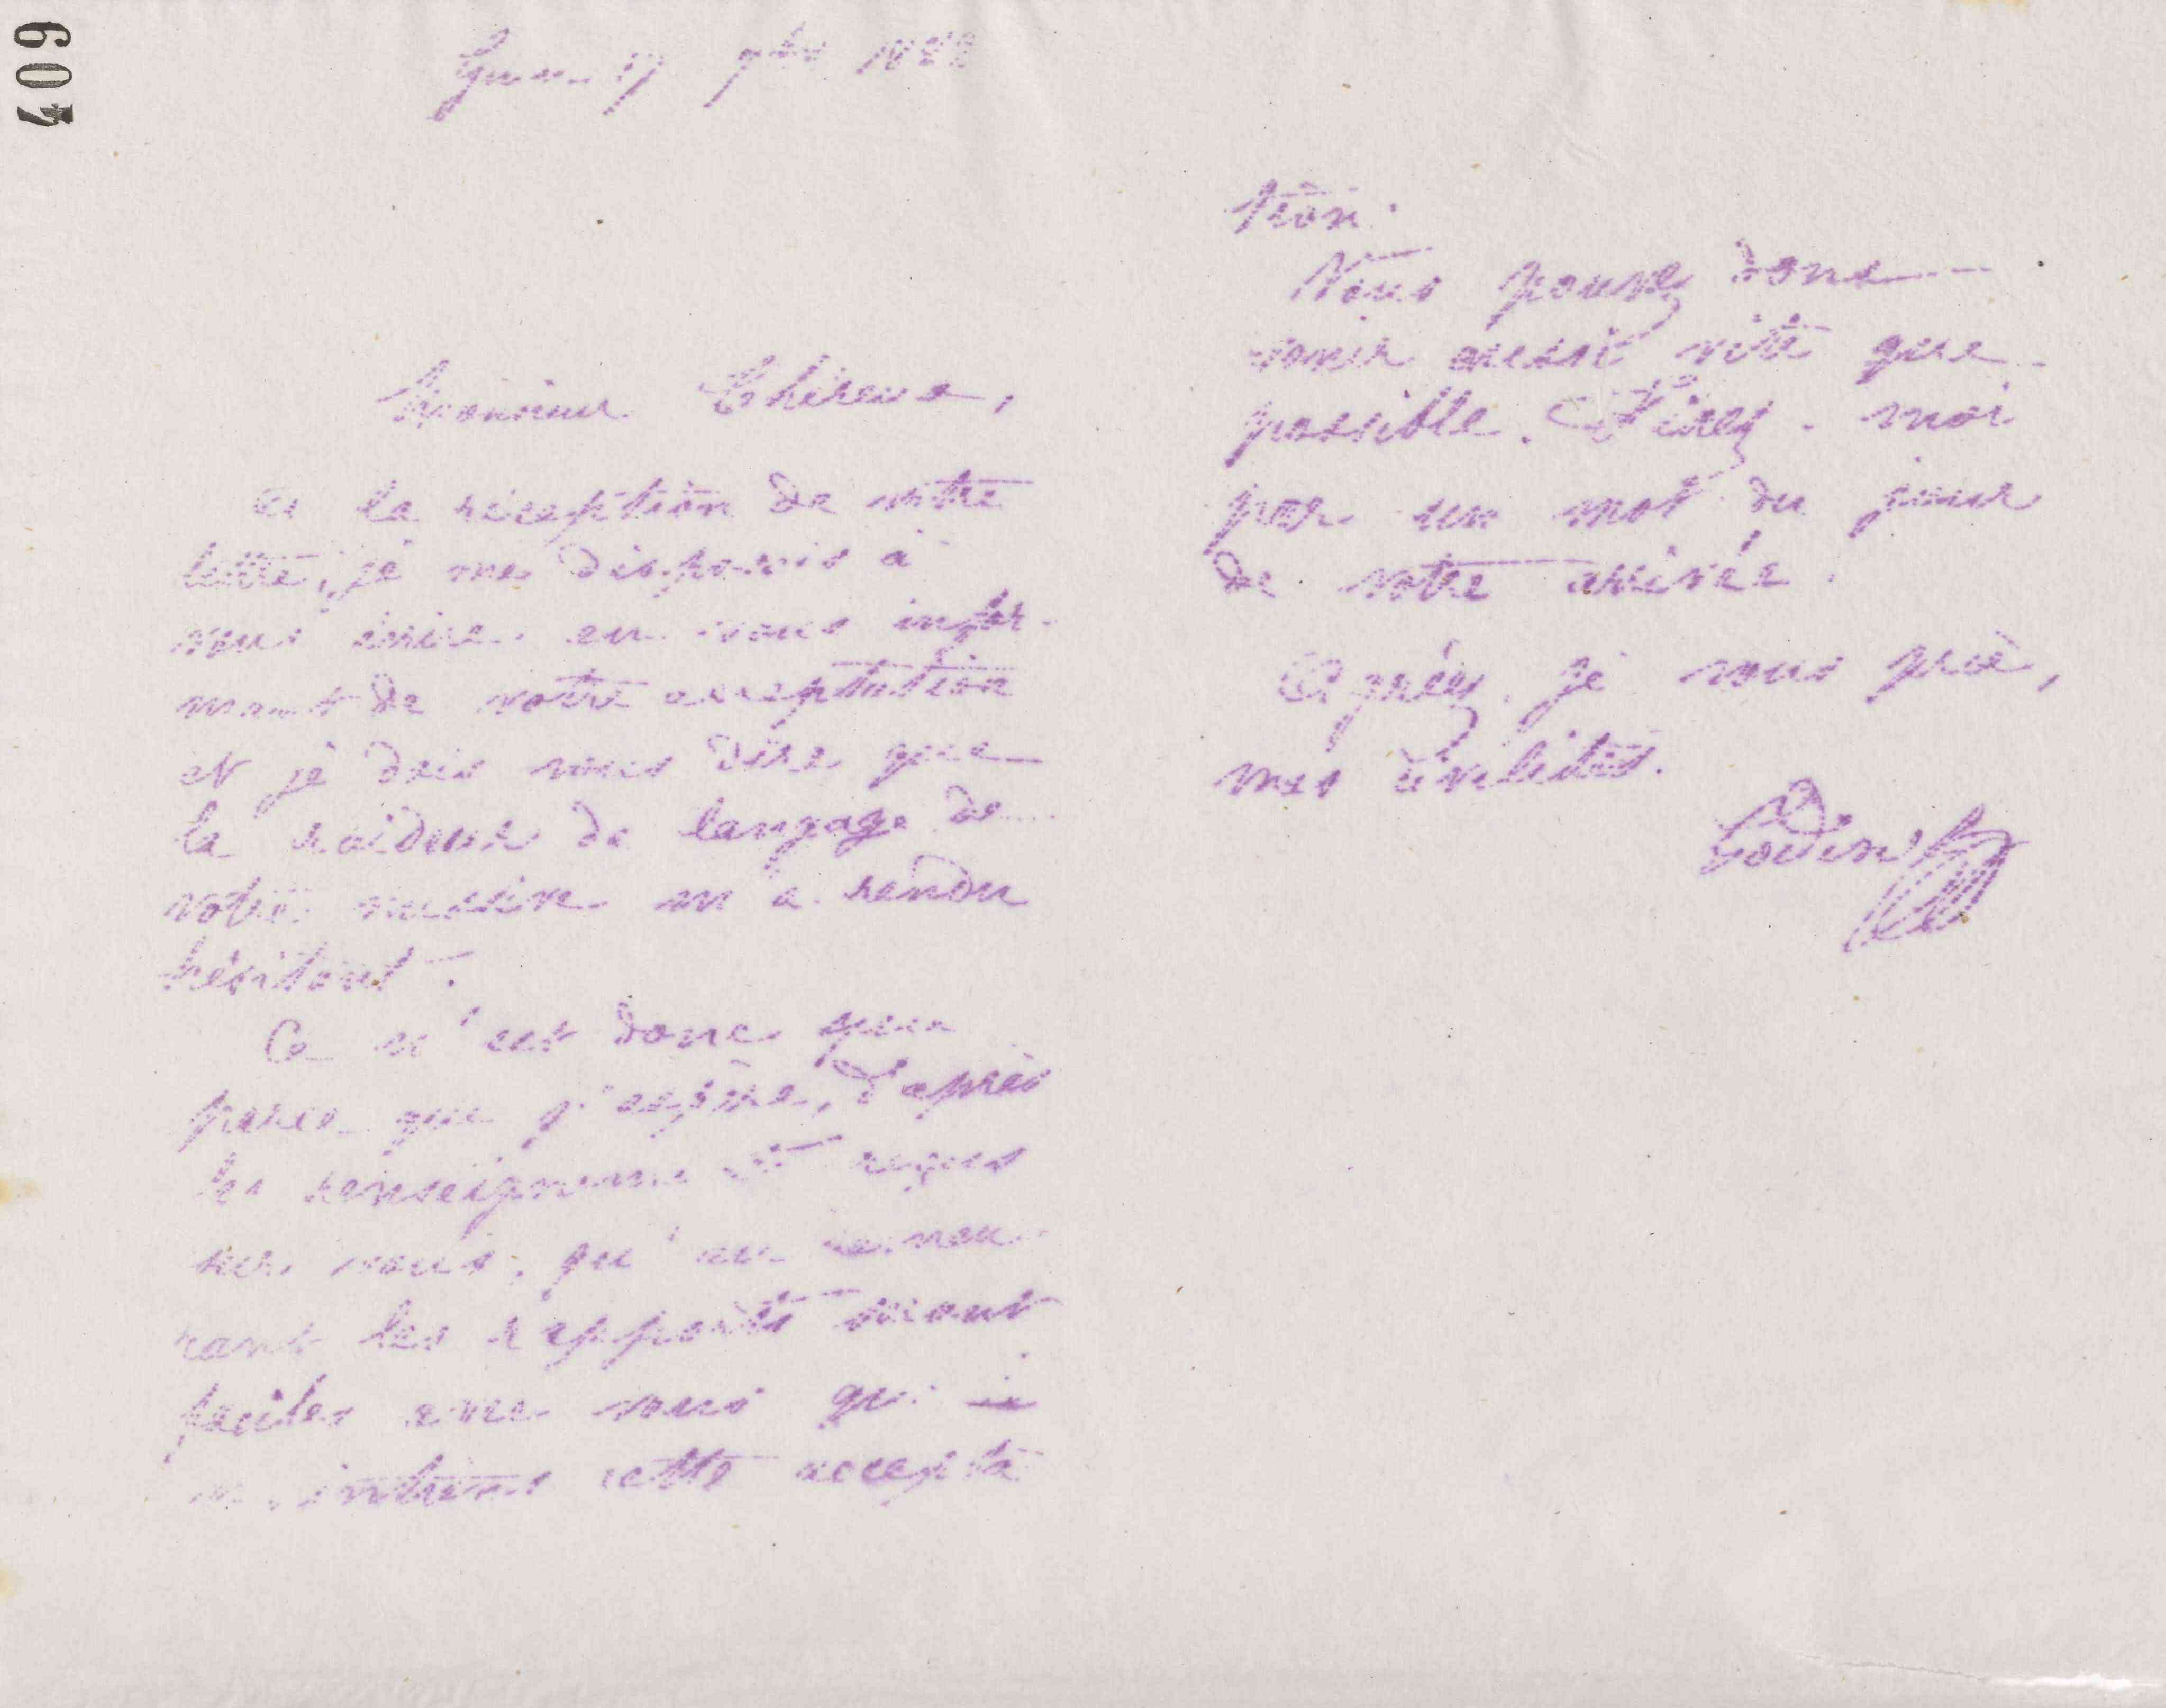 409
Guise 17 7bre 1888
Monsieur
A la réception de votre
lettre, je me disposais à
vous écrire en vous infor-
mant de votre acceptation
et je dois vous dire que
la raideur de langage de
votre missive m'a rendu
hésitant.
Ce n'est donc que
parce que j'espère, d'après
les renseignements reçus
sur vous, qu'au demeu-
rant les rapports seront
faciles avec vous que je
maintiens cette accepta
tion.
Vous pouvez donc
venir aussi vite que
possible. Fixez-moi
par un mot du jour
de votre arrivée.
Agréez, je vous prie,
mes civilités.
Godin